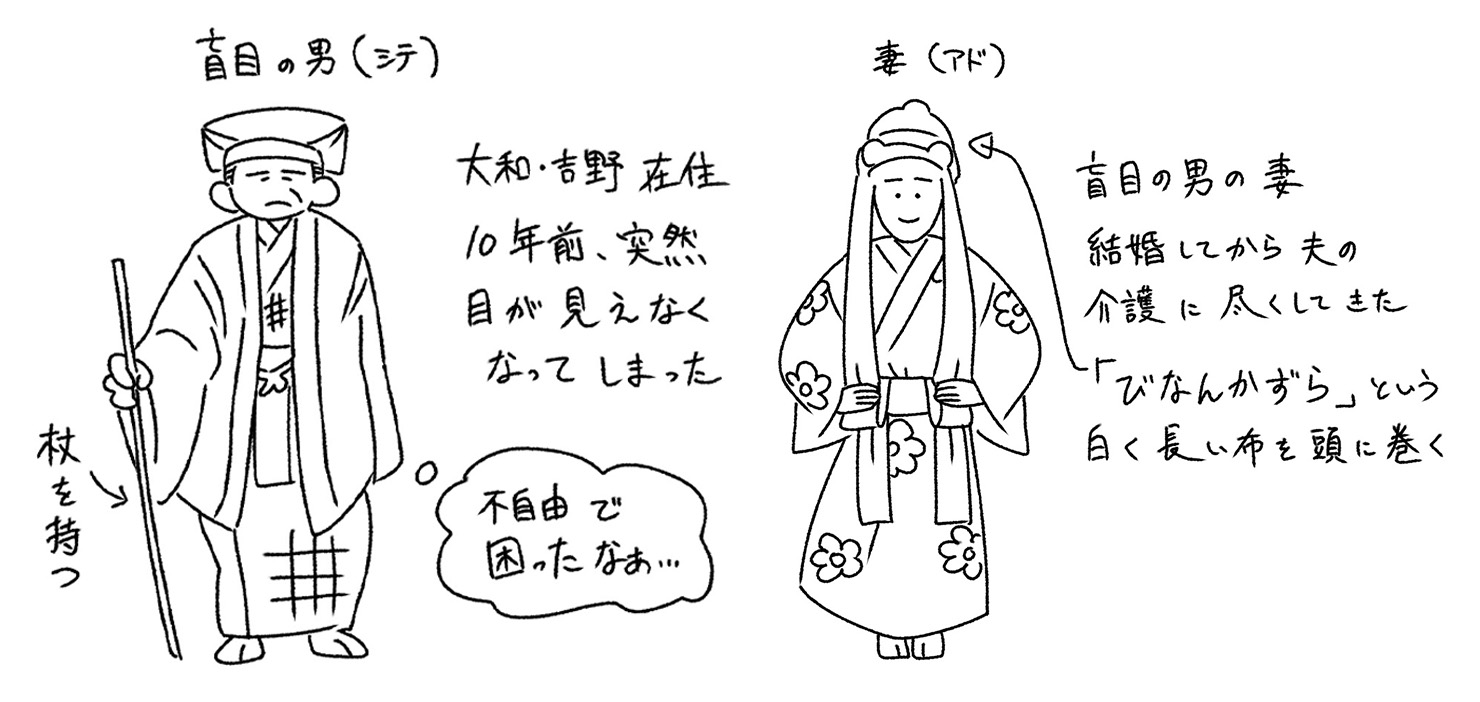 盲目の男(シテ)
大和・吉野在住
10年前、突然
目が見えなく
なってしまった
杖を持つ
不自由で
困ったなぁ…
妻(アド)
盲目の男の妻
結婚してから夫の
介護に尽くしてきた
「びなんかずら」という
白く長い布を頭に巻く